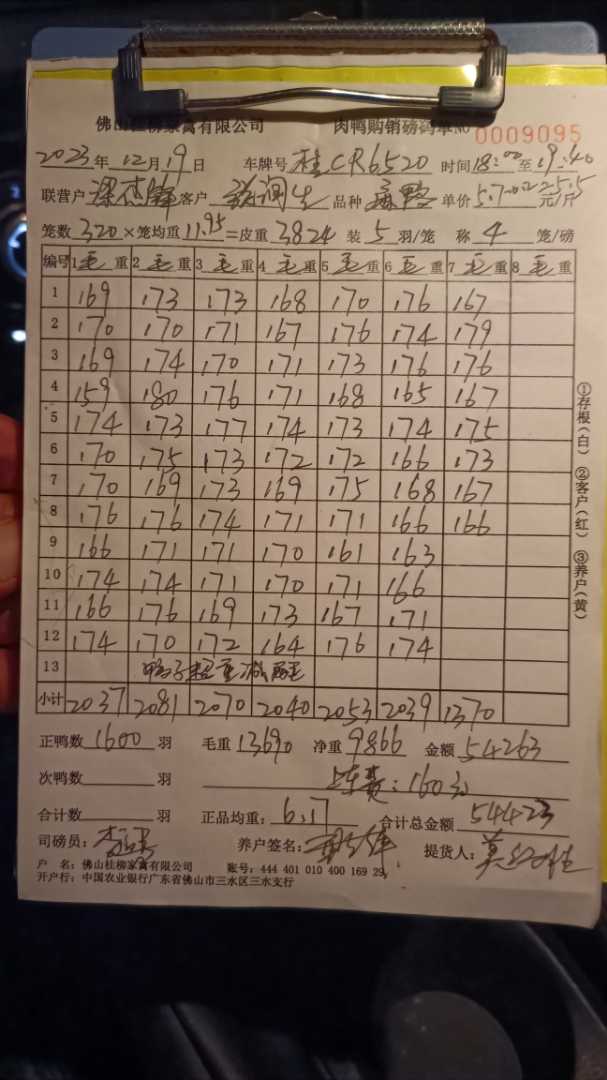 佛山桂柳家禽有限公司 肉鸭购销磅码单No 0009095
2023年12月19日 车牌号 桂CR6520 时间18:00至19:40
联营户 客户 品种 麻鸭 单价5.7-0.2=5.5元/斤
笼数320×笼均重11.95=皮重3824 装5羽/笼 称4笼/磅
编号 1毛重 2毛重 3毛重 4毛重 5毛重 6毛重 7毛重 8毛重
1 169 173 173 168 170 176 167
2 170 170 171 167 176 174 179
3 169 174 170 171 173 176 176
4 159 180 176 171 168 165 167
5 174 173 177 174 173 174 175
6 170 175 173 172 172 166 173
7 170 169 173 169 175 168 167
8 176 176 174 171 171 166 166
9 166 171 171 170 161 163
10 174 174 171 170 171 166
11 166 176 169 173 167 171
12 174 170 172 164 176 174
13 鸭子超重减
小计 2037 2081 2070 2040 2053 2039 1370
正鸭数1600羽 毛重13690 净重9866 金额54263
次鸭数 羽 上车费:160元
合计数 羽 正品均重:6.17 合计总金额54423
司磅员: 养户签名: 提货人:
户 名:佛山桂柳家禽有限公司 账号:444 401 010 400 169 29
开户行:中国农业银行广东省佛山市三水区三水支行
①存根(白) ②客户(红) ③养户(黄)